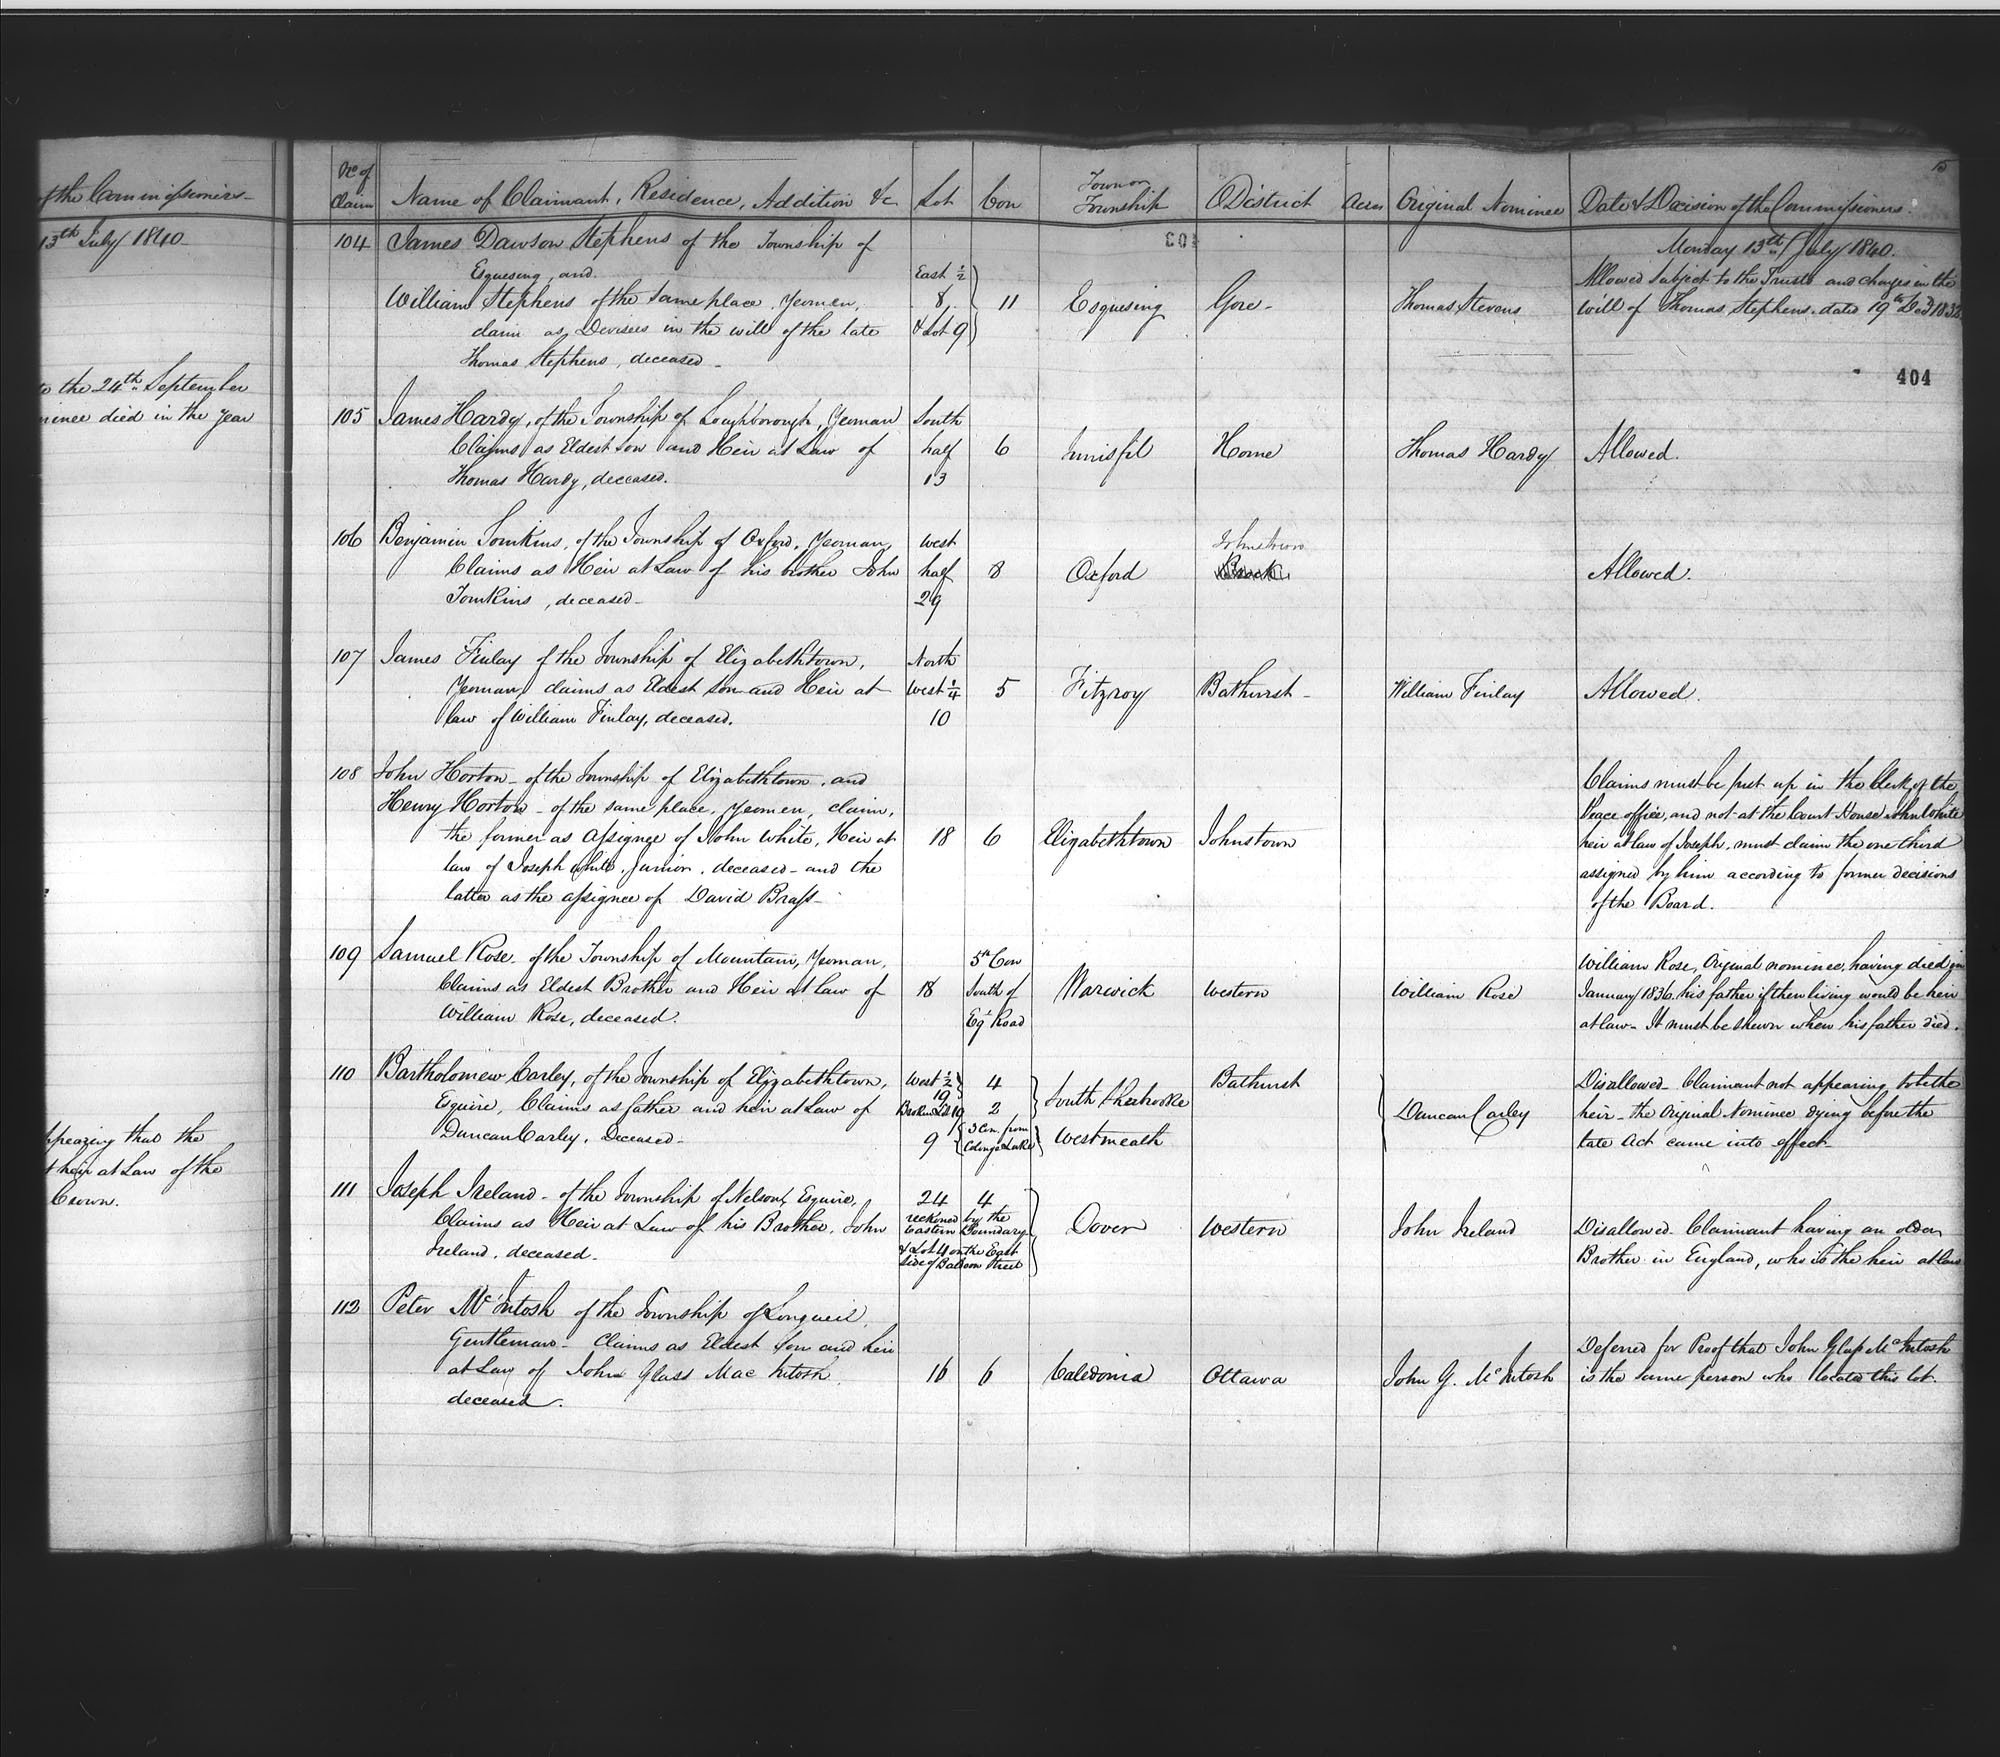 of the Commissioners
13th July 1840
to the 24th September
died in the year
appearing that the
heir at Law of the
Crown.
15
No of Claim
Name of Claimant, Residence, Addition &c
Lot
Con
Town or Township
District
Acres
Original Nominee
Date & Decision of the Commissioners.
403
Monday 13th July 1840.
104
James Dawson Stephens of the Township of
Esquesing, and
William Stephens of the same place, Yeomen,
claim as Devisees in the will of the late
Thomas Stephens, deceased
East ½
8
& Lot 9
11
Esquesing
Gore
Thomas Stevens
Allowed subject to the Trusts and charges in the
Will of Thomas Stephens dated 19th Decr 1832
404
105
James Hardy, of the Township of Loughborough, Yeoman
Claims as Eldest Son and Heir at Law of
Thomas Hardy, deceased.
South
half
13
6
Innisfil
Home
Thomas Hardy
Allowed.
106
Benjamin Tomkins, of the Township of Oxford, Yeoman,
Claims as Heir at Law of his brother John
Tomkins, deceased
West
half
29
8
Oxford
Johnstown
Allowed.
107
James Finlay of the Township of Elizabethtown,
Yeoman, claims as Eldest son and Heir at
law of William Finlay, deceased.
North
West ¼
10
5
Fitzroy
Bathurst
William Finlay
Allowed.
108
John Horton of the Township of Elizabethtown, and
Henry Horton of the same place, Yeomen, claim,
the former as Assignee of John White, Heir at
law of Joseph White, Junior, deceased and the
latter as the assignee of David Brass
18
6
Elizabethtown
Johnstown
Claims must be put up in the Clerk of the
Peace office, and not at the Court House John White
heir at law of Joseph, must claim the one third
assigned by him according to former decisions
of the Board.
109
Samuel Rose of the Township of Mountain, Yeoman,
Claims as Eldest Brother and Heir at Law of
William Rose, deceased.
18
5th Con
South of
Egt Road
Warwick
Western
William Rose
William Rose, Original nominee, having died in
January 1836 his father if then living would be heir
at law. It must be shewn when his father died.
110
Bartholomew Carley, of the Township of Elizabethtown,
Esquire, Claims as father and heir at Law of
Duncan Carley, Deceased
West ½
19
Broken Lot 19
9
4
2
3 Con. from
Lake
South Sherbrooke
Westmeath
Bathurst
Duncan Carley
Disallowed Claimant not appearing to be the
heir the Original Nominee dying before the
late Act came into effect
111
Joseph Ireland of the Township of Nelson, Esquire,
Claims as Heir at Law of his Brother, John
Ireland, deceased
24 4
reckoned by the
Eastern Boundary
& Lot 4 on the East
side of Baldoon Street
Dover
Western
John Ireland
Disallowed. Claimant having an older
Brother in England, who is the heir at law
112
Peter McIntosh of the Township of Longueil,
Gentleman Claims as Eldest Son and heir
at Law of John Glass Mac Intosh,
deceased.
16
6
Caledonia
Ottawa
John G. McIntosh
Deferred for Proof that John Glass McIntosh
is the same person who located this lot.